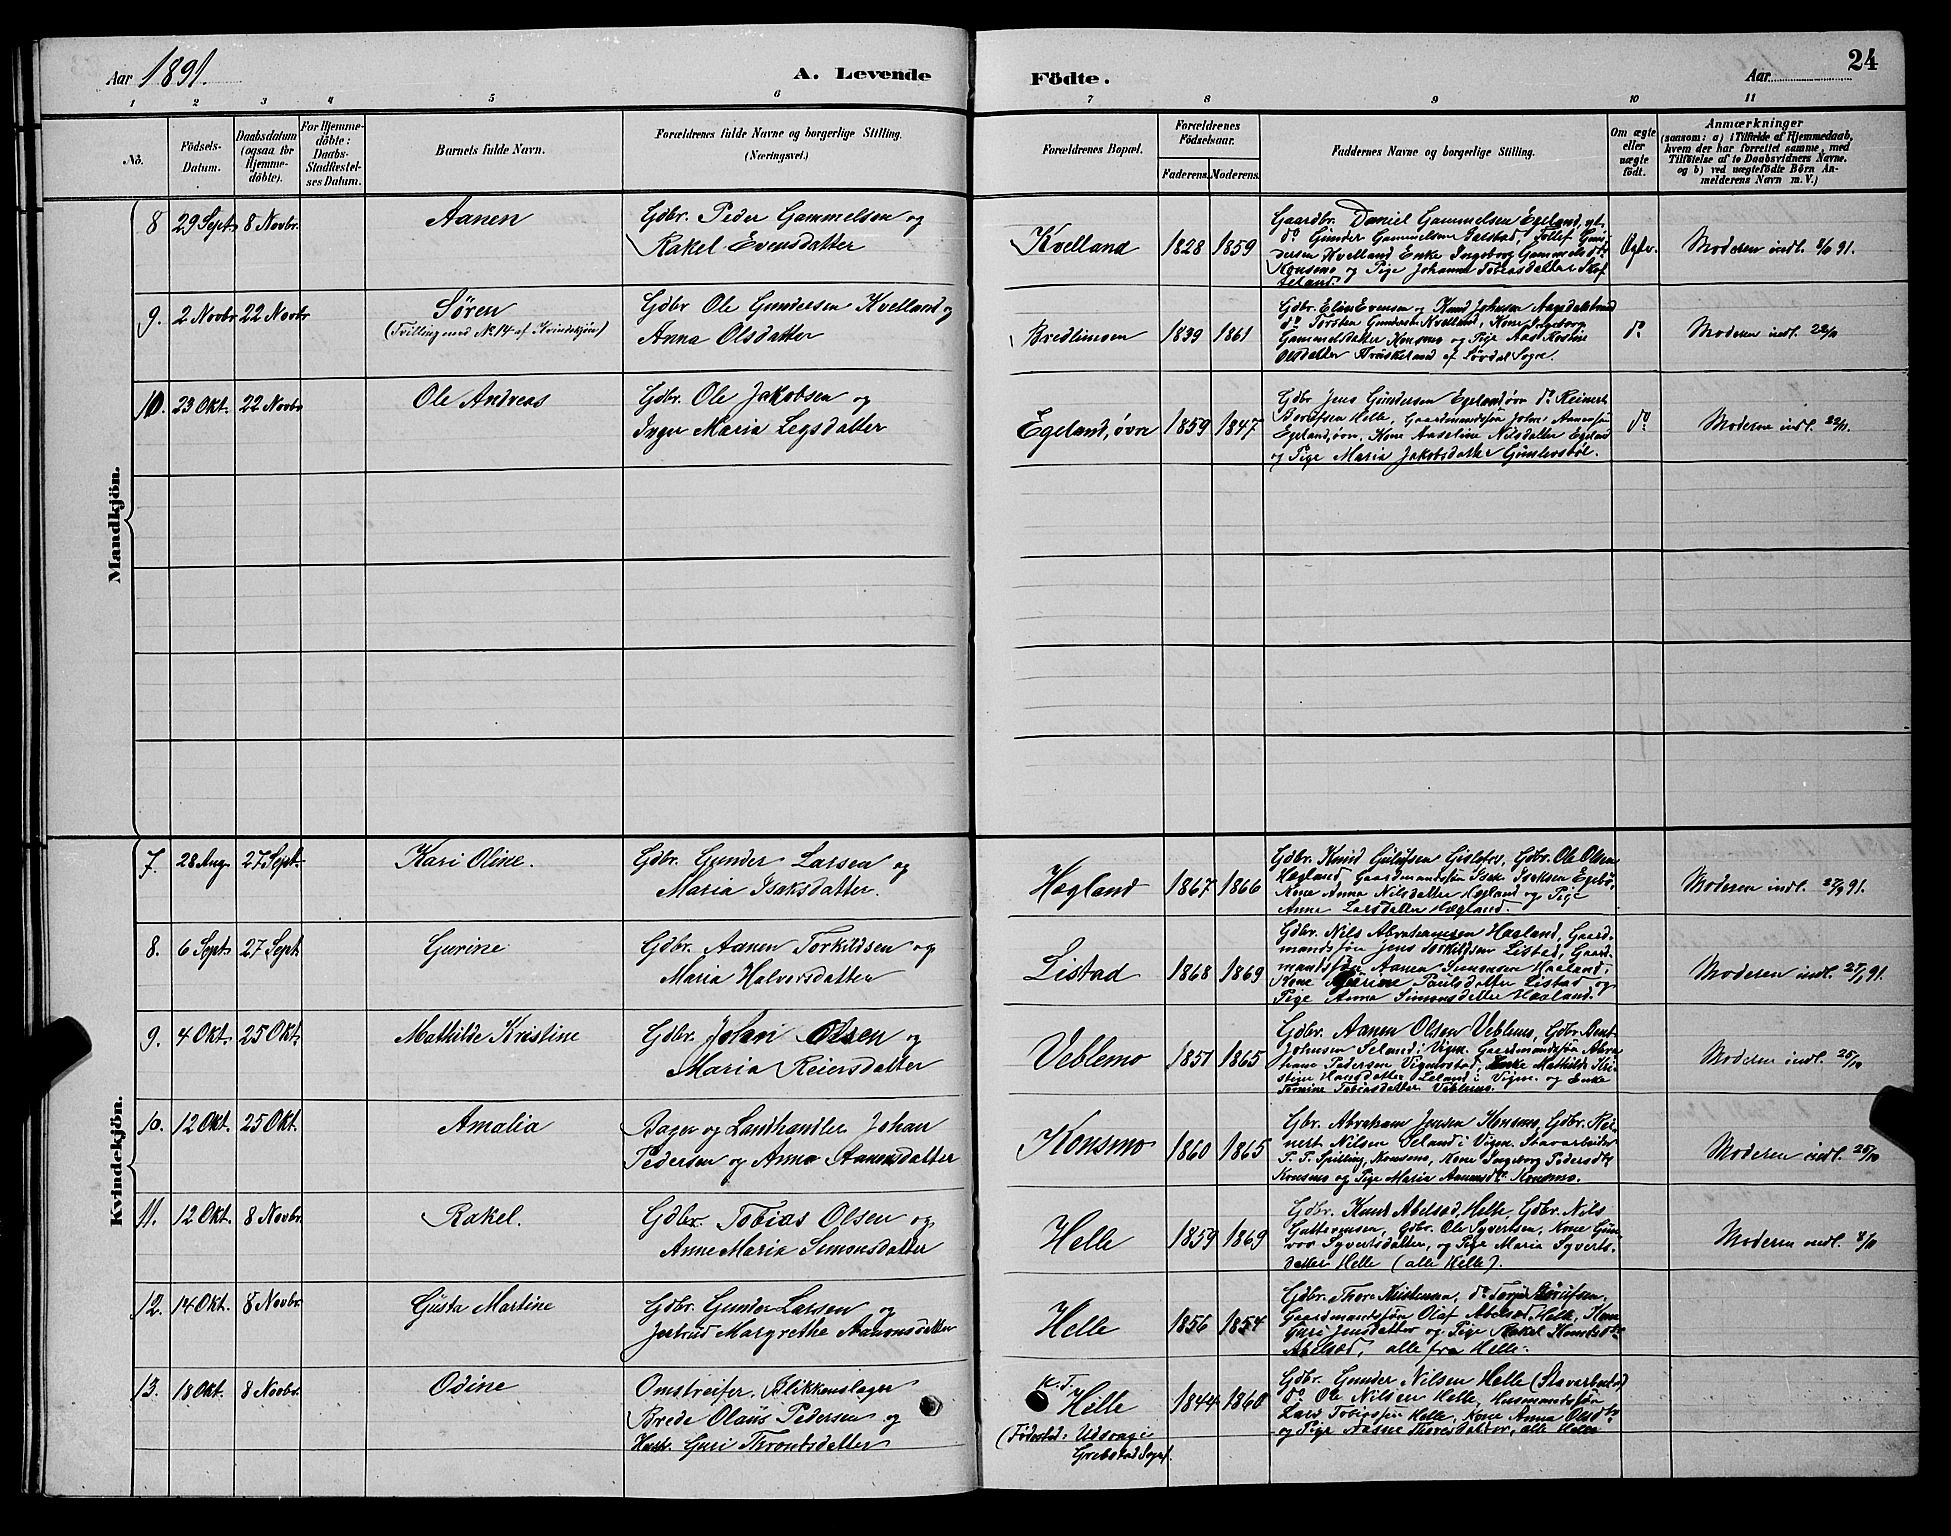 Aar 1891.
A. Levende Födte.
Aar
24
1 2 3 4 5 6 7 8 9 10 11
No.
Födsels-Datum.
Daabsdatum (ogsaa for Hjemme-döbte).
For Hjemme-döbte: Daabs-Stadfæstel-ses Datum.
Barnets fulde Navn.
Forældrenes fulde Navne og borgerlige Stilling. (Næringsvei.)
Forældrenes Bopæl.
Forældrenes Födselsaar.
Faderens. Moderens.
Faddernes Navne og borgerlige Stilling.
Om ægte eller uægte födt.
Anmærkninger
(saasom: a) i Tilfælde af Hjemmedaab, hvem der har forrettet samme, med Tilföielse af to Daabsvidners Navne. og b) ved uægtefödte Börn An-melderens Navn m. V.)
Mandkjön.
8 29 Sept 8 Novbr. Aanen
Gdbr. Peder Gammelsen og
Rakel Evensdatter
Kvelland 1828 1859
Gaardbr. Daniel Gammelsen Egeland,
do Gunder Gammelsen
Kvelland Enke Ingeborg Gammelsdtr
Konsmo og Pige Johanne Tobiasdatter
Ægte. Moderen indl. 8/11 91.
9. 2 Novbr 22 Novbr Søren
(Tvilling med No 14 af Kvindekjøn)
Gdbr Ole Gundersen Kvelland og
Anna Olsdatter
Bredlimoen 1839 1861
Gdbr. Elias Evensen og Knud Johnsen
do Torsten Gundersen Kvelland, Kone Ingeborg
Gammelsdatter Konsmo og Pige
Olsdatter af Sogn.
do Moderen indl. 22/11
10. 23 Okt. 22 Novbr Ole Andreas
Gdbr. Ole Jakobsen og
Inger Maria Legsdatter
Egeland, øvre 1859 1847
Gdbr. Jens Gundersen Egeland, øvre do Reinert
Berntsen Helle, Gaardmandssøn John Aanensen
Egeland, øvre, Kone Aaseline Nilsdatter Egeland
og Pige Maria Jakobsdatter
do Moderen indl. 22/11.
Kvindekjön.
7. 28 Aug. 27 Sept. Kari Oline.
Gdbr. Gunder Larsen og
Maria Isaksdatter.
Hægland 1867 1866
Gdbr. Knud Gislefos, Gdbr. Ole Olsen
Hægland, Gaardmandssøn Isak Isaksen Egebø,
Kone Anna Nilsdatter Hægland og Pige
Anne Larsdatter Hægland.
Moderen indl. 27/9 91.
8. 6 Sept 27 Sept Gurine
Gdbr. Aanen Torkildsen og
Maria Halvorsdatter
Listad 1868 1869
Gdbr. Nils Abrahamsen Haaland, Gaard-
mandssøn Jens Torkildsen Listad, Gaard-
mandssøn Aanen Simonsen Haaland,
Kone Paulsdatter Listad og
Pige Anne Simonsdatter Haaland.
Moderen indl. 27/9 91.
9. 4 Okt. 25 Okt. Mathilde Kristine
Gdbr. Johan Olsen og
Maria Reiersdatter
Veblemo 1851 1865
Gdbr. Aanen Olsen Veblemo, Gdbr. Bent
Johnsen Seland i Vigm. Gaardmandssøn Abra-
ham Pedersen Vigmostad, Enke Mathilde Kri-
stine Hansdatter Seland i Vigm. og Enke
Tomine Tobiasdatter Veblemo.
Moderen indl. 25/10
10. 12 Okt. 25 Okt. Amalia
Bager og Landhandler Johan
Pedersen og Anna Aanensdatter
Konsmo 1860 1865
Gbr. Abraham Jensen Konsmo, Gdbr. Rei-
nert Nilsen Seland i Vigm. Stavarbeider
P. P. Spilling Konsmo, Kone Ingeborg Pedersdtr
Konsmo og Pige Maria Aanensdtr Konsmo.
Moderen indl. 25/10
11. 12 Okt. 8 Novbr. Rakel.
Gdbr. Tobias Olsen og
Anne Maria Simonsdatter
Helle 1859 1869
Gdbr. Knut Abelsød Helle, Gdbr. Nils
Guttormsen, Gdbr. Ole Syvertsen, Kone Gun-
vor Syvertsdatter, og Pige Maria Syverts-
datter Helle (alle Helle).
Moderen indl. 8/11
12. 14 Okt. 8 Novbr. Gusta Martine
Gdbr. Gunder Larsen og
Jortrud Margrethe Aanonsdatter
Helle 1856 1854
Gdbr. Thore Kristensen, do
Gaardmandssøn Olaf Abelsød Helle, Kone
Guri Jensdatter og Pige Rakel Knudsdtr
Abelsød, alle fra Helle.
13. 18 Okt. 8 Novbr. Odine
Omstreifer, Blikkenslager
Brede Olaüs Pedersen og
Hustr. Guri Throndsdatter
K. T.
Helle 1844 1860
(Fødested: Udvaag i
Grebstad Sogn).
Gdbr. Gunder Nilsen Helle (Stavarbeider)
do Ole Nilsen Helle, Husmandssøn
Lars Tobiassen Helle, Kone Anna Olsdtr
og Pige Aasne Thoresdatter, alle Helle